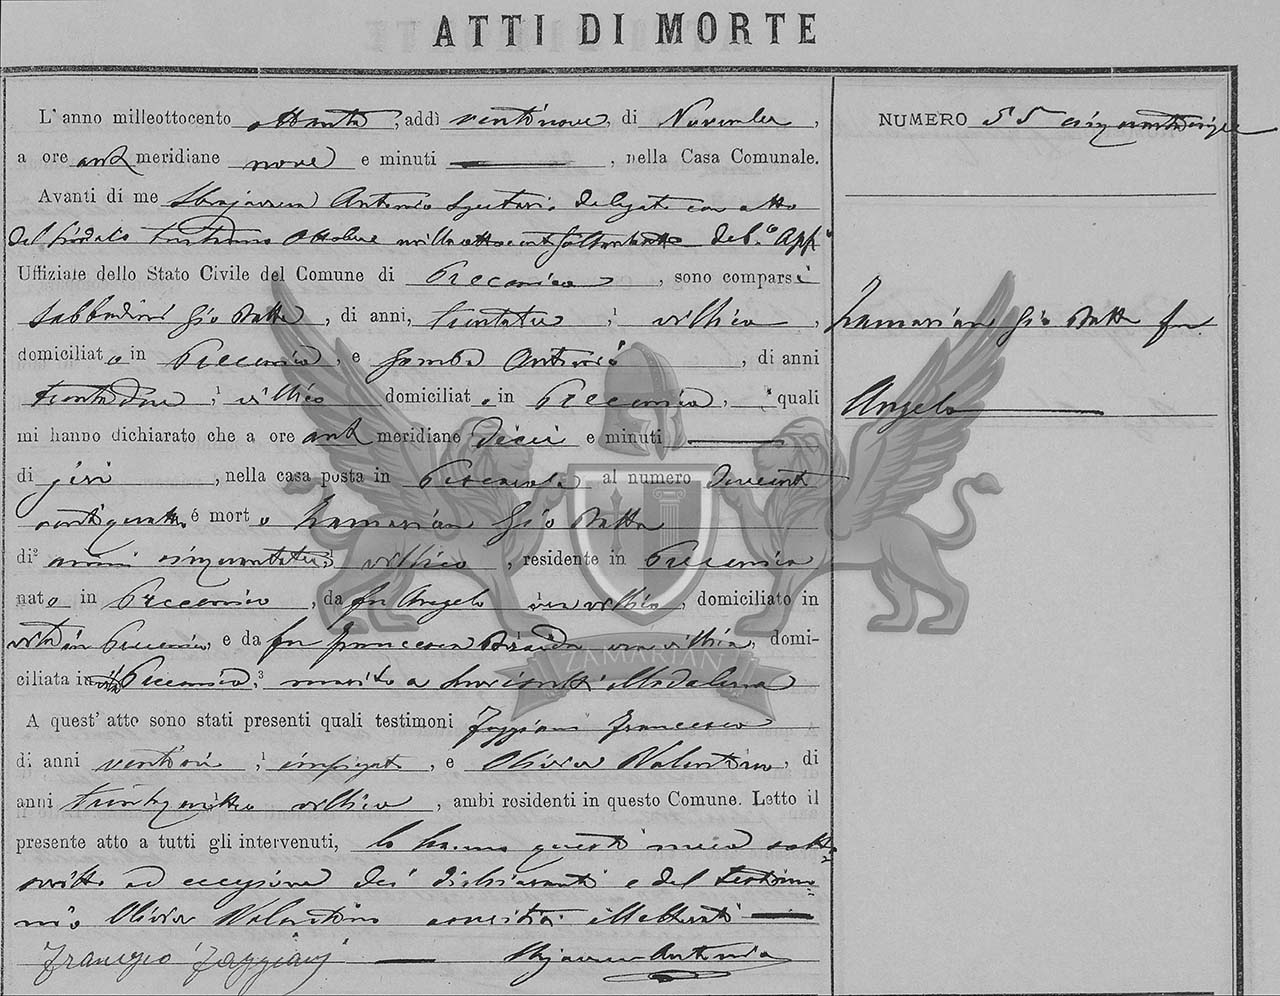 ATTI DI MORTE
L'anno milleottocento ottanta, addì ventinove, di Novembre,
a ore ant meridiane nove e minuti, nella Casa Comunale.
Avanti di me Antonio Segretario delegato con atto
del Sindaco Ottobre deb.e App.o
Uffiziale dello Stato Civile del Comune di Precenico, sono comparsi
Sabbadini Gio Batta, di anni, trentatre, villico,
domiciliato in Precenico, e Antonio, di anni
trentadue, villico domiciliato in Precenico, i quali
mi hanno dichiarato che a ore ant meridiane dieci e minuti
di jeri, nella casa posta in Precenico al numero
é morto Zamarian Gio Batta
di² anni cinquantatre, villico, residente in Precenico
nato in Precenico, da fu Angelo era villico, domiciliato in
vita in Precenico, e da fu Francesca era villica, domi-
ciliata in vita Precenico,³ marito a Maddalena
A quest' atto sono stati presenti quali testimoni Faggiani Francesco
di anni, ¹ impiegato, e Olivier Valentino, di
anni trentaquattro villico, ambi residenti in questo Comune. Letto il
presente atto a tutti gli intervenuti, lo hanno questi meco sotto
scritto ad eccezione dei dichiaranti e del testimo
nio Olivier Valentino illetterati
Francesco Faggiani Antonio
NUMERO 55 cinquantacinque
Zamarian Gio Batta fu
Angelo
ZAMARIAN